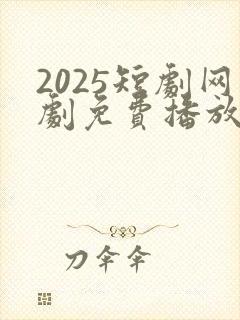 2025短劇网
劇免費播放
刀伞伞